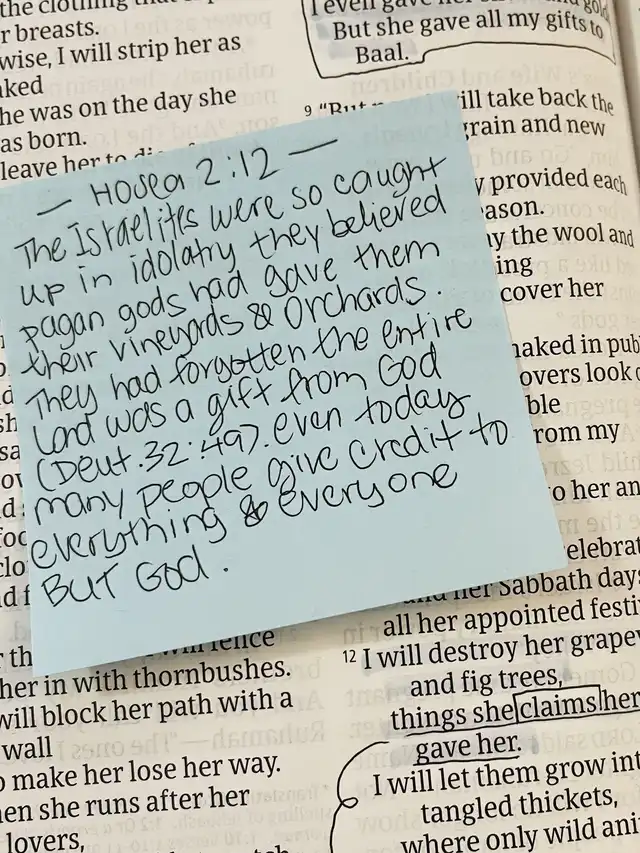 the clothing that
r breasts.
wise, I will strip her as
naked
he was on the day she
as born.
leave her to
I even gave
But she gave all my gifts to
Baal.
9 "But will take back the
grain and new
provided each
season.
the wool and
cover her
naked in
lovers look
from my
to her
and her Sabbath days
all her appointed
12 I will destroy her
and fig trees,
things she claims her
gave her.
I will let them grow
tangled thickets,
where only wild
— HOSEA 2:12 —
The Israelites were so caught
up in idolatry they believed
pagan gods had gave them
their vineyards & orchards.
They had forgotten the entire
Lord was a gift from God
(Deut. 32:49). even today
many people give credit to
everything & everyone
BUT GOD.
her in with thornbushes.
will block her path with a
wall
make her lose her way.
she runs after her
lovers,